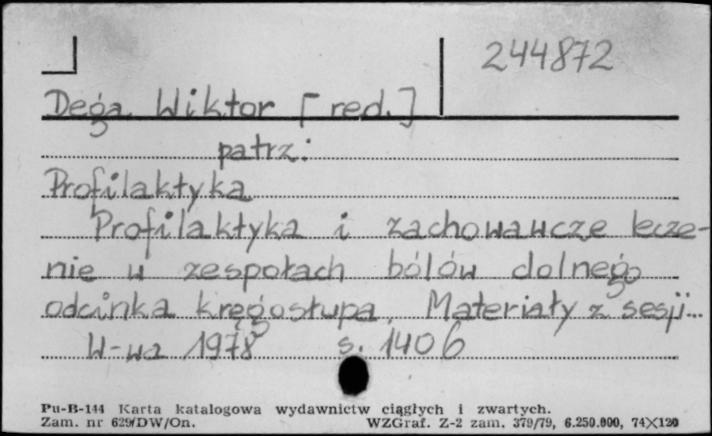 244872
Dega Wiktor [red.]
patrz:
Profilaktyka
Profilaktyka i zachowawcze lecze-
nie w zespołach bólów dolnego
odcinka kręgosłupa. Materiały z sesji...
W-wa 1978 s. 1406
Pu-B-144 Karta katalogowa wydawnictw ciągłych i zwartych.
Zam. nr 629/DW/On. WZGraf. Z-2 zam. 379/79, 6.250.000, 74X120